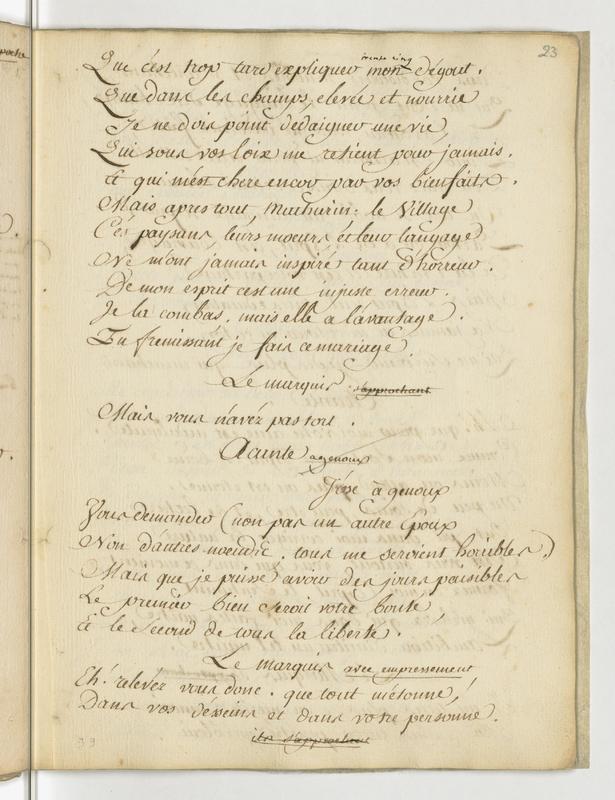 23
Que c'est trop tard expliquer mon dégout.
Que dans les champs elevée et nourrie
Je ne dois point dedaigner une vie
Qui sous vos loix me retient pour jamais.
Et qui m'est chere encor par vos bienfaits.
Mais apres tout, Mathurin, le Village
Ces paysans, leurs moeurs et leur langage
Ne m'ont jamais inspiré tant d'horreur.
De mon esprit c'est une injuste erreur.
Je la combas, mais elle a l'avantage.
En fremissant je fais ce mariage.
Le marquis s'approchant
Mais vous n'avéz pas tort.
Acante a genoux
J'ose à genoux
Vous demander (non pas un autre Epoux
Non d'autres noeuds, tous me seroient horribles)
Mais que je puisse avoir des jours paisibles
Le premier bien seroit votre bonté,
Et le Second de tous la liberté.
Le marquis avec empressement
Eh! relevéz vous donc. que tout m'étonne,
Dans vos desseins et dans votre personne.
ils s'approchent